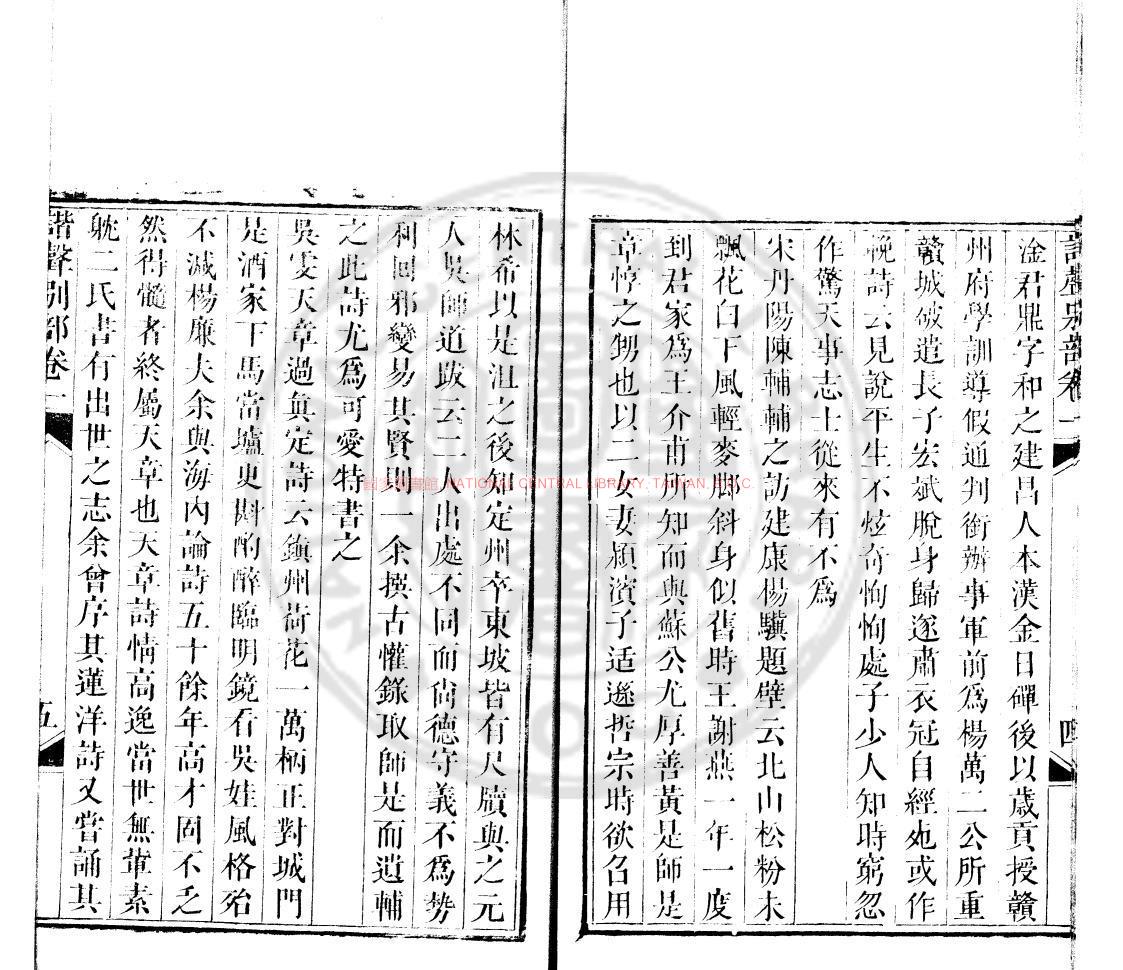 淦君鼎字和之建昌人本漢金日磾後以歲貢授贛
州府學訓導假通判銜辦事軍前為楊萬二公所重
贛城破遣長子宏斌脫身歸逐肅衣冠自經死或作
輓詩云見說平生不炫奇恂恂處子少人知時窮忽
作驚天事志士從來有不為
宋丹陽陳輔輔之訪建康楊驥題壁云北山松粉未
飄花白下風輕麥腳斜身似舊時王謝燕一年一度
到君家為王介甫所知而與蘇公尤厚善黃是師是
章惇之甥也以二女妻潁濱子适遜哲宗時欲召用
四
林希以是沮之後知定州卒東坡皆有尺牘與之元
人吳師道跋云二人出處不同而尙德守義不為勢
利回邪變易其賢則一余撰古懽錄取師是而遺輔
之此詩尤為可愛特書之
吳雯天章過真定詩云鎮州荷花一萬柄正對城門
是酒家下馬當壚更斟酌醉臨明鏡看吳娃風格殆
不減楊廉夫余與海內論詩五十餘年高才固不乏
然得髓者終屬天章也天章詩情高逸當世無輩素
躭二氏書有出世之志余曾序其蓮洋詩又嘗誦其
諧聲別部卷一
五